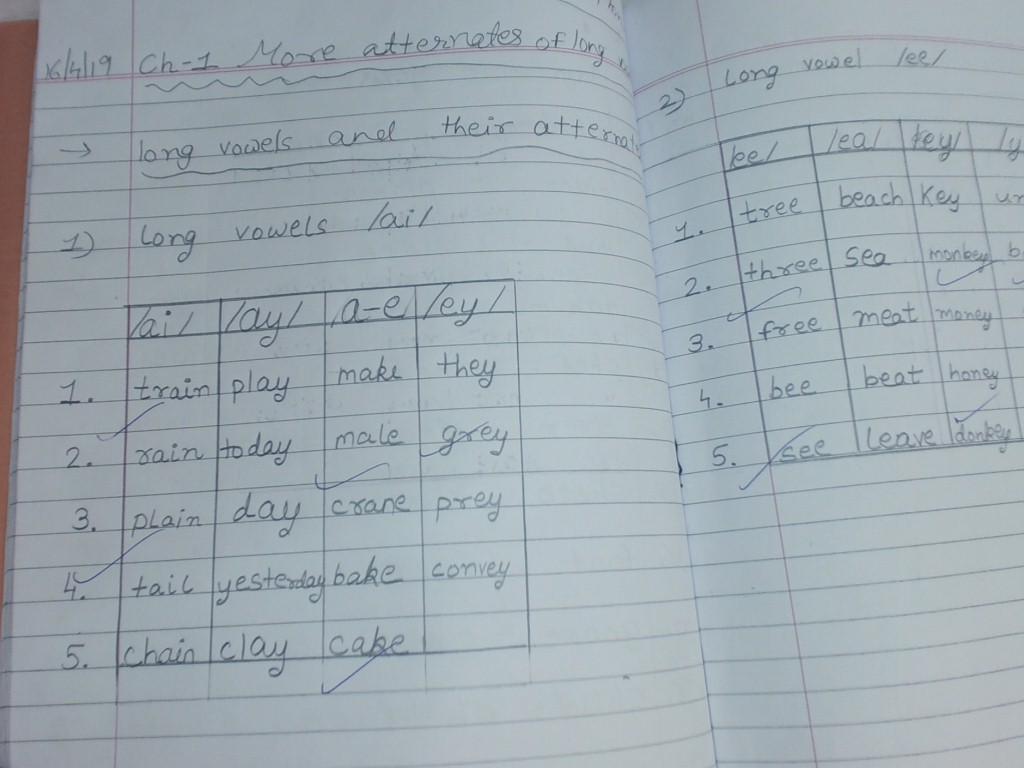 16/4/19 Ch-1 More atternates of long
→ long vowels and their atternat
1) Long vowels /ai/
/ai/ /ay/ /a-e /ey/
1. train play make they
2. rain today male grey
3. plain day crane prey
4. tail yesterday bake convey
5. chain clay cake
2) Long vowel /ee/
/ee/ /ea/ /ey/ /y
1. tree beach key
2. three sea monkey
3. free meat money
4. bee beat honey
5. see leave donkey